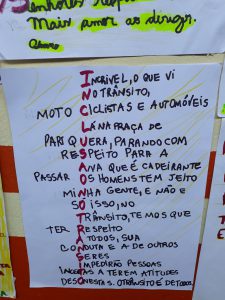 enhores resp
Mais amor ao dirigir.
INCRÍVEL, O QUE VI
NO TRÂNSITO,
MOTOCICLISTAS E AUTOMÓVEIS
LÁ NA PRAÇA DE
PARIQUERA, PARANDO COM
RESPEITO PARA A
ANA QUE É CADEIRANTE
PASSAR OS HOMENS TEM JEITO
MINHA GENTE, E NÃO É
SÓ ISSO, NO
TRÂNSITO, TEMOS QUE
TER RESPEITO
A TODOS, SUA
CONDUTA E A DE OUTROS
SERES
IMPEDIRÃO PESSOAS
A TEREM ATITUDES
DESONESTAS. O TRÂNSITO É DE TODOS.